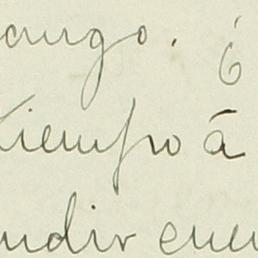 ango. ó
tiempo á
ndir cuen